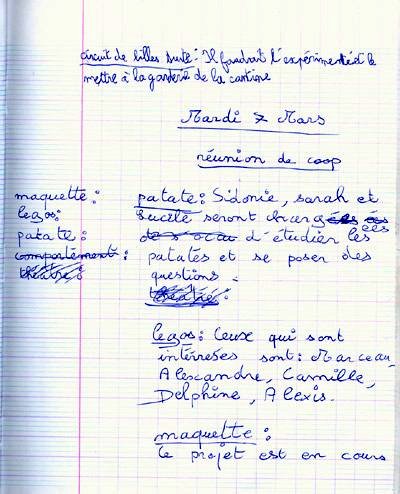 circuit de billes suite : Il faudrait l'expérimenter et le
mettre à la garderie de la cantine
Mardi 7 Mars
réunion de coop
maquette :
legos :
patate :
comportement :
théâtre :
patate : Sidonie, sarah et
Lucile seront chargées
de s'occu d'étudier les
patates et se poser des
questions.
théâtre :
legos : Ceux qui sont
intéréssés sont : Marceau,
Alexandre, Camille,
Delphine, Alexis.
maquette :
le projet est en cours